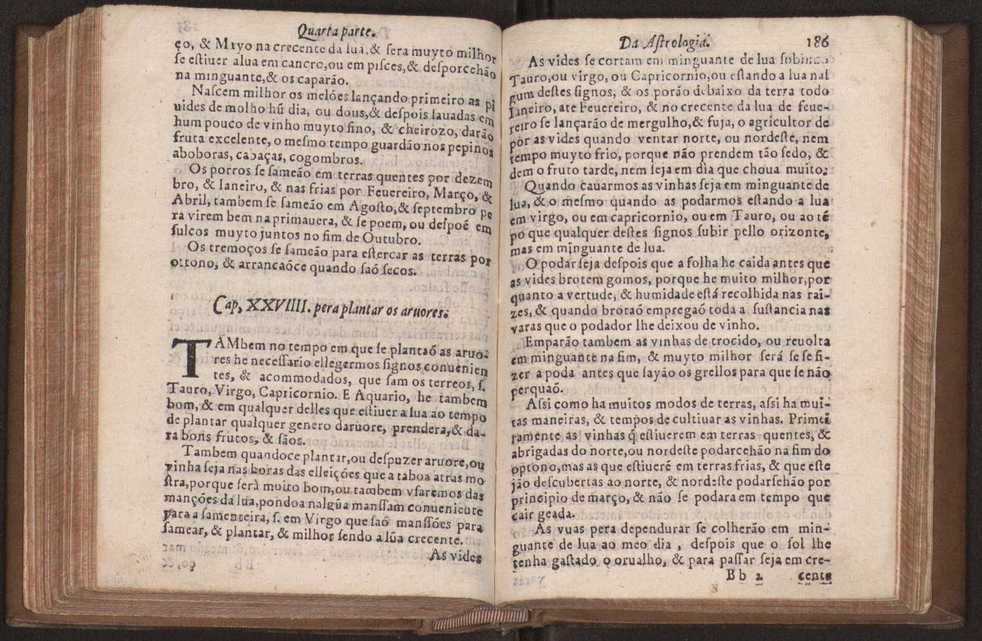 Quarta parte.
ço, & Mayo na crecente da lua, & sera muyto milhor
se estiuer alua em cancro, ou em pisces, & desporcehão
na minguante, & os caparão.
Nascem milhor os melões lançando primeiro as pi
uides de molho hũ dia, ou dous, & despois lauadas em
hum pouco de vinho muyto fino, & cheirozo, darão
fruta excelente, o mesmo tempo guardão nos pepinos
aboboras, cabaças, cogombros.
Os porros se sameão em terras quentes por dezem
bro, & Ianeiro, & nas frias por Feuereiro, Março, &
Abril, tambem se sameão em Agosto, & septembro pe
ra virem bem na primauera, & se poem, ou despoẽ em
sulcos muyto juntos no fim de Outubro.
Os tremoços se sameão para estercar as terras por
ottono, & arrancaõce quando saõ secos.
Cap, XXVIIII. pera plantar os aruores.
TAMbem no tempo em que se plantaõ as aruo-
res he necessario ellegermos signos conuenien
tes, & acommodados, que sam os terreos, s.
Tauro, Virgo, Capricornio. E Aquario, he tambem
bom, & em qualquer delles que estiuer a lua ao tempo
de plantar qualquer genero daruore, prendera, & da-
ra bons frutos, & sãos.
Tambem quandoce plantar, ou despuzer aruore, ou
vinha seja nas horas das elleições que a taboa atras mo
stra, porque será muito bom, ou tambem vsaremos das
manções da lua, pondoa nalgũa manssam conueniente
para a samenteira, s. em Virgo que saõ manssões para
samear, & plantar, & milhor sendo a lũa crecente.
As vides
Da Astrologia. 186
As vides se cortam em minguante de lua subindo
Tauro, ou virgo, ou Capricornio, ou estando a lua nal
gum destes signos, & os porão debaixo da terra todo
Ianeiro, ate Feuereiro, & no crecente da lua de feue-
reiro se lançarão de mergulho, & fuja, o agricultor de
pòr as vides quando ventar norte, ou nordeste, nem
tempo muyto frio, porque não prendem tão sedo, &
dem o fruto tarde, nem seja em dia que choua muito.
Quando cauarmos as vinhas seja em minguante de
lua, & o mesmo quando as podarmos estando a lua
em virgo, ou em capricornio, ou em Tauro, ou ao tẽ
po que qualquer destes signos subir pello orizonte,
mas em minguante de lua.
O podar seja despois que a folha he caida antes que
as vides brotem gomos, porque he muito milhor, por
quanto a vertude, & humidade está recolhida nas rai-
zes, & quando brotaõ empregaõ toda a sustancia nas
varas que o podador lhe deixou de vinho.
Emparão tambem as vinhas de trocido, ou reuolta
em minguante na fim, & muyto milhor será se se fi-
zer a poda antes que sayão os grellos para que se não
perquaõ.
Assi como ha muitos modos de terras, assi ha mui-
tas maneiras, & tempos de cultiuar as vinhas. Primei
ramente as vinhas q̃ estiuerem em terras quentes, &
abrigadas do norte, ou nordeste podarcehão na fim do
optono, mas as que estiuerẽ em terras frias, & que este
jão descubertas ao norte, & nordeste podarsehão por
principio de março, & não se podara em tempo que
cair geada.
As vuas pera dependurar se colherão em min-
guante de lua ao meo dia, despois que o sol lhe
tenha gastado o orualho, & para passar seja em cre-
Bb 2 cente